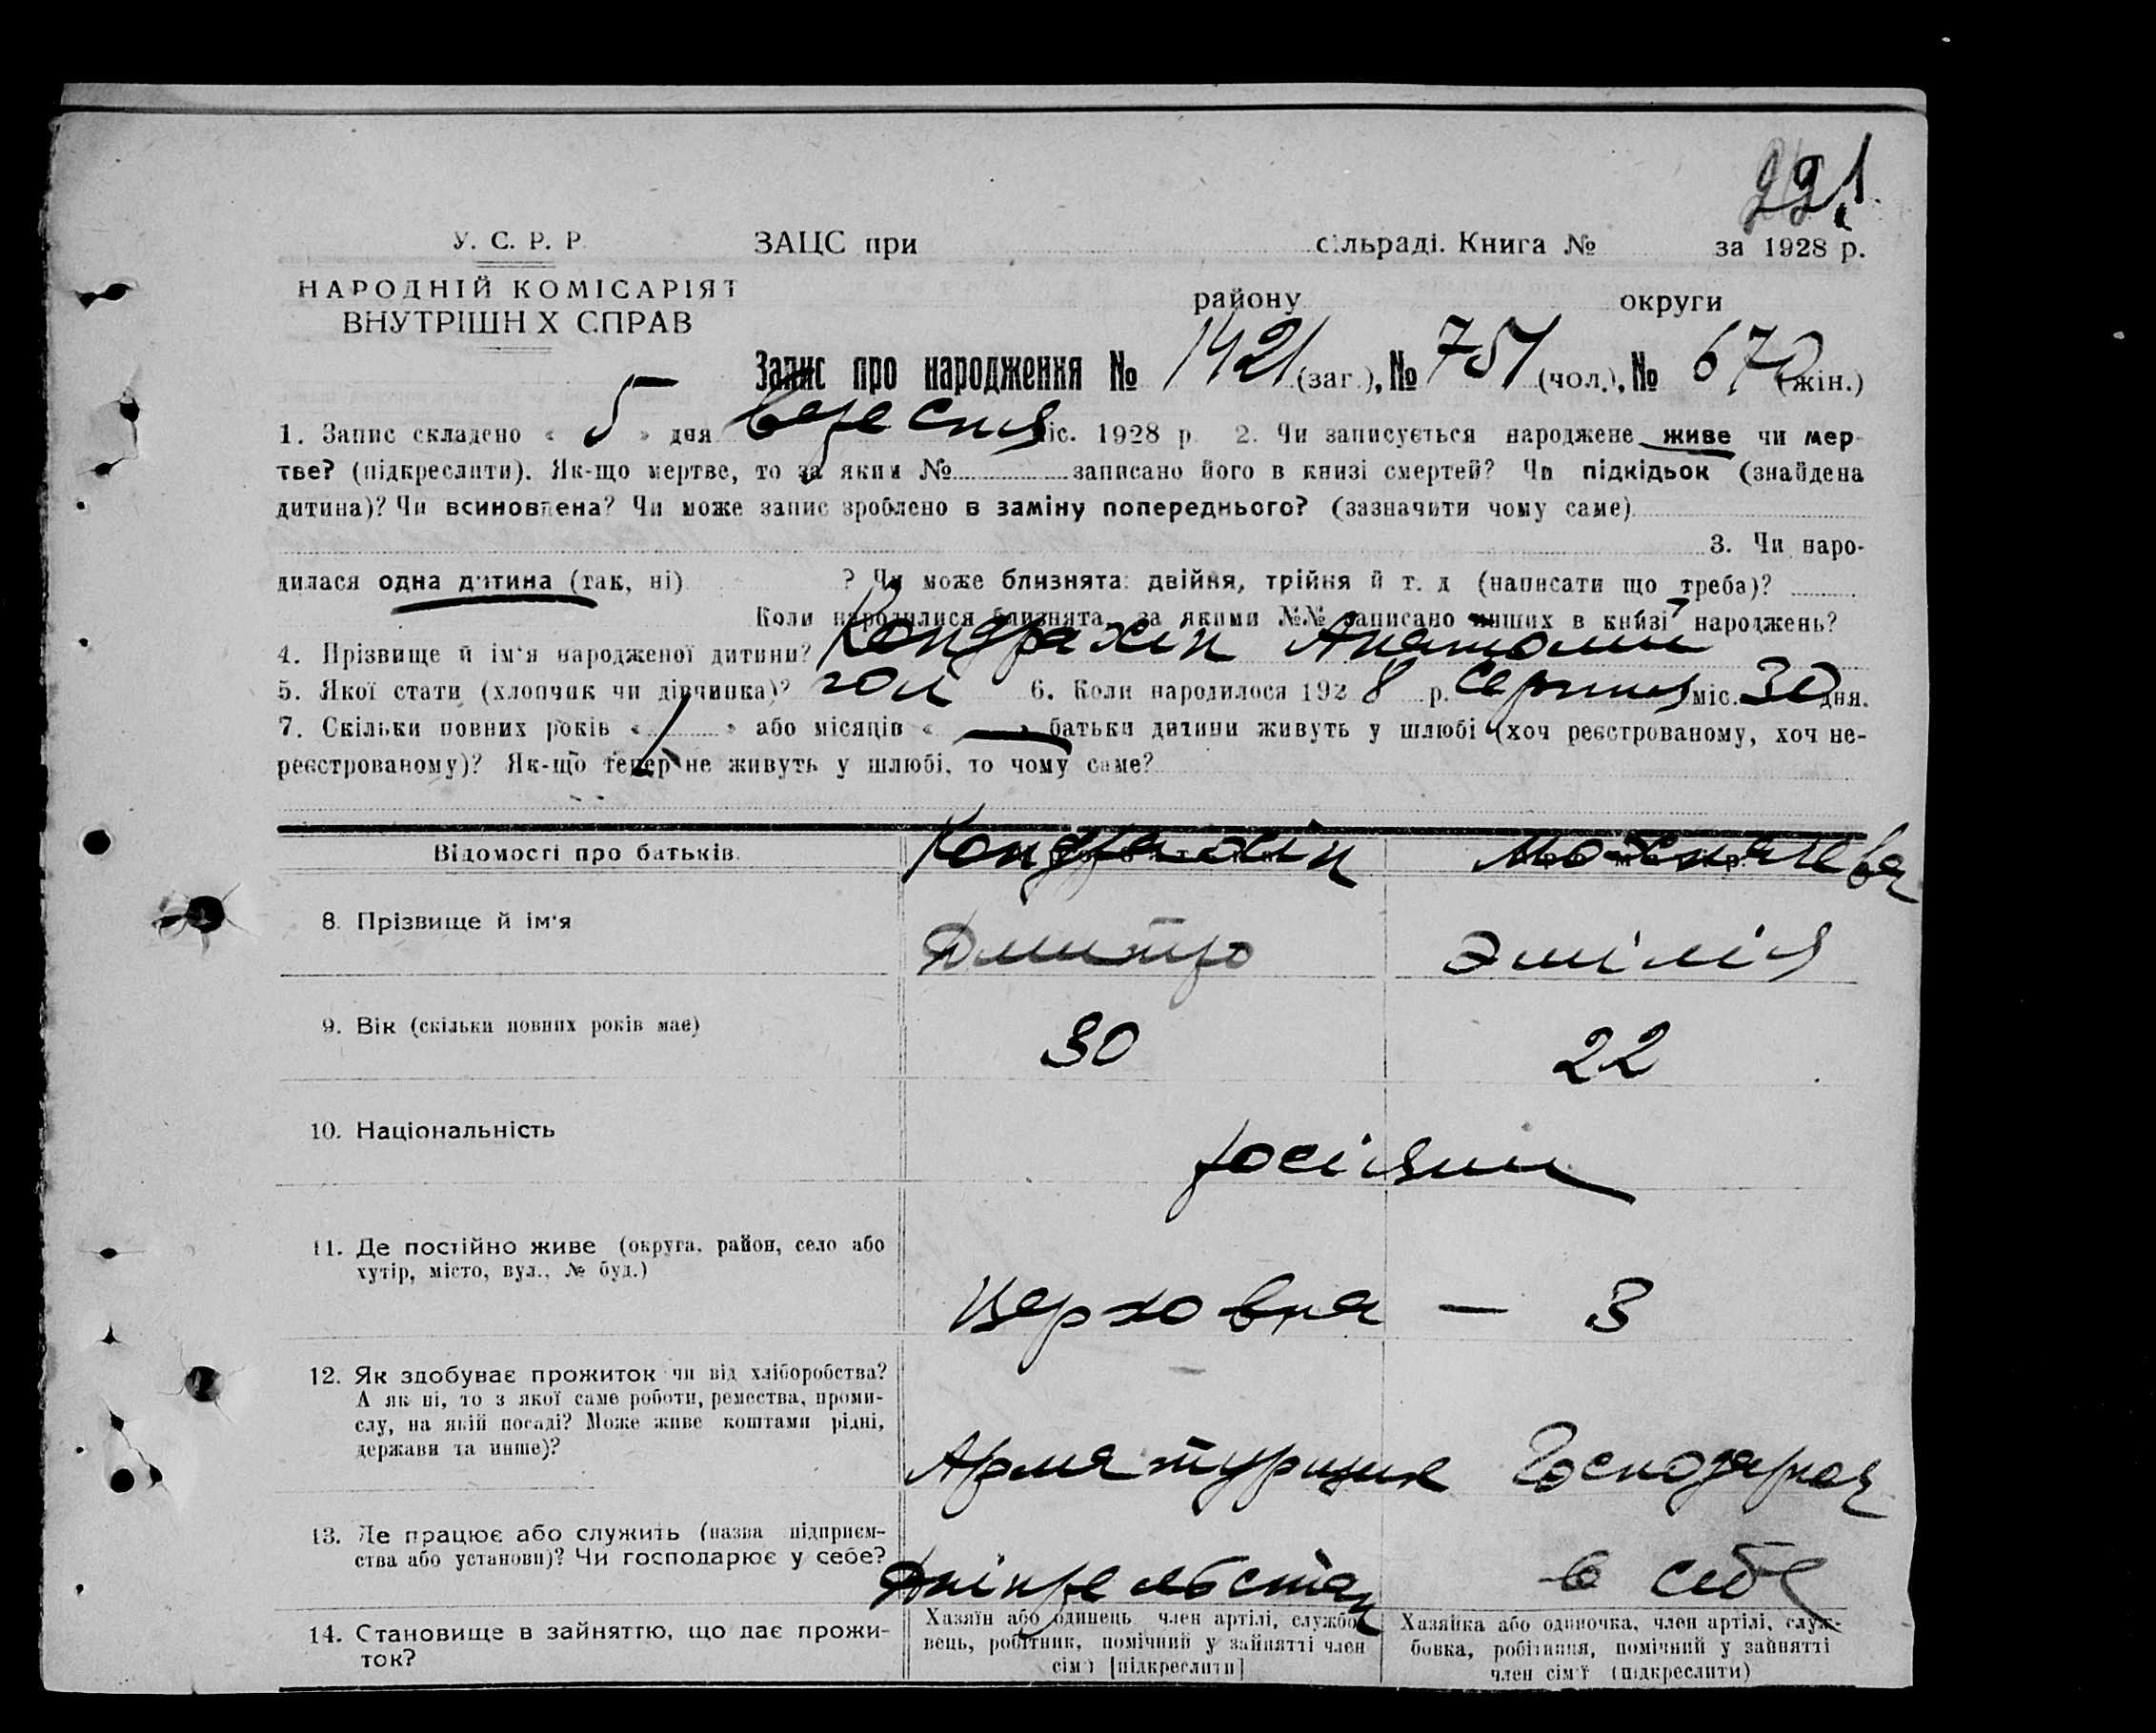 221
У. С. Р. Р.
ЗАЦС при сільраді. Книга № за 1928 р.
НАРОДНІЙ КОМІСАРІЯТ
ВНУТРІШН Х СПРАВ
району округи
Запис про народження № 1421 (заг.), № 751 (чол.), № 670 (жін.)
1. Запис складено « 5 » дня вересня міс. 1928 р. 2. Чи записується народжене живе чи мер-
тве? (підкреслити). Як-що мертве, то за яким № записано його в книзі смертей? Чи підкідьок (знайдена
дитина)? Чи всиновлена? Чи може запис зроблено в заміну попереднього? (зазначити чому саме)
3. Чи наро-
дилася одна дитина (так, ні) ? Чи може близнята: двійня, трійня й т. д (написати що треба)?
Коли народилися близнята, за якими №№ записано инших в книзі народжень?
4. Прізвище й ім'я народженої дитини? Кондрахин Анатолий
5. Якої стати (хлопчик чи дівчинка)? чол 6. Коли народилося 1928 р. серпня міс. 30 дня.
7. Скільки повних років « 1 » або місяців « — » батьки дитини живуть у шлюбі (хоч реєстрованому, хоч не-
реєстрованому)? Як-що тепер не живуть у шлюбі, то чому саме?
Відомості про батьків Кондрахін
8. Прізвище й ім'я Дмитро Эмілія
9. Вік (скільки повних років має) 30 22
10. Національність росіяни
11. Де постійно живе (округа, район, село або
хутір, місто, вул., № буд.)
Церковна — 3
12. Як здобуває прожиток чи від хліборобства?
А як ні, то з якої саме роботи, ремества, проми-
слу, на якій посаді? Може живе коштами рідні,
держави та инше)?
Арматурщик Господарка
13. Де працює або служить (назва підприєм-
ства або установи)? Чи господарює у себе?
Дніпрельстан в себе
14. Становище в зайняттю, що дає прожи-
ток?
Хазяїн або одинець член артілі, службо-
вець, робітник, помічний у зайнятті член
сім'ї [підкреслити]
Хазяйка або одиночка, член артілі, служ-
бовка, робітниця, помічний у зайнятті
член сім'ї (підкреслити)